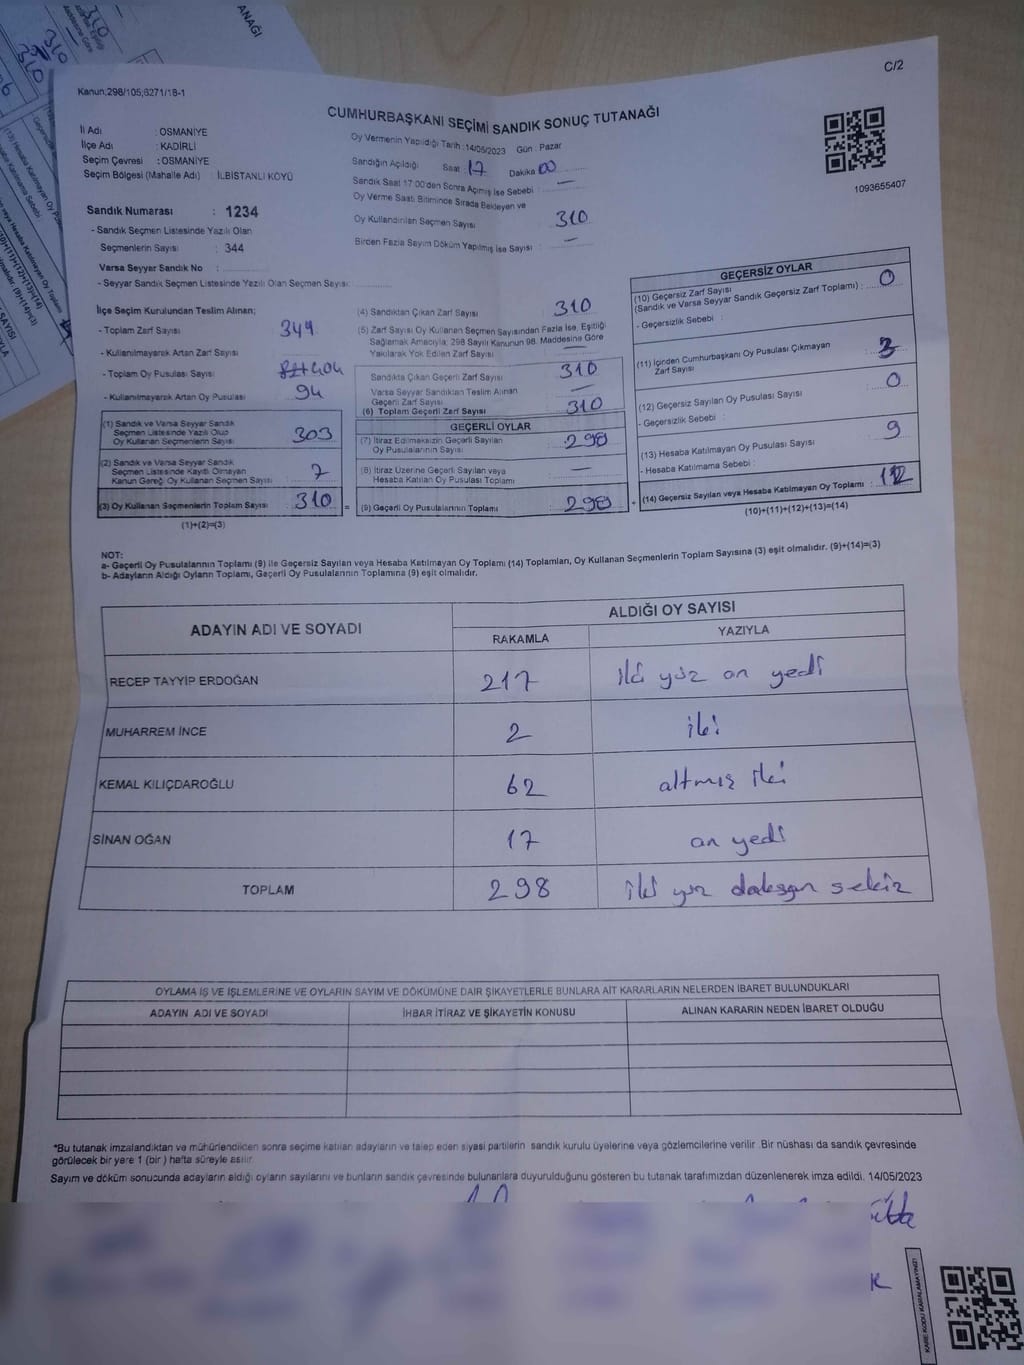 ANAĞI
310
310
310
C/2
Kanun;298/105;6271/18-1
CUMHURBAŞKANI SEÇİMİ SANDIK SONUÇ TUTANAĞI
İl Adı : OSMANİYE
İlçe Adı : KADİRLİ
Seçim Çevresi : OSMANİYE
Seçim Bölgesi (Mahalle Adı) : İLBİSTANLI KÖYÜ
Sandık Numarası : 1234
- Sandık Seçmen Listesinde Yazılı Olan
Seçmenlerin Sayısı : 344
Varsa Seyyar Sandık No :
- Seyyar Sandık Seçmen Listesinde Yazılı Olan Seçmen Sayısı:
Oy Vermenin Yapıldığı Tarih :14/05/2023 Gün : Pazar
Sandığın Açıldığı Saat : 17 Dakika 00
Sandık Saat 17:00'den Sonra Açılmış İse Sebebi : —
Oy Verme Saati Bitiminde Sırada Bekleyen ve
Oy Kullandırılan Seçmen Sayısı : 310
Birden Fazla Sayım Döküm Yapılmış İse Sayısı : —
1093655407
İlçe Seçim Kurulundan Teslim Alınan;
- Toplam Zarf Sayısı : 349
- Kullanılmayarak Artan Zarf Sayısı :
- Toplam Oy Pusulası Sayısı : 404
- Kullanılmayarak Artan Oy Pusulası : 94
(1) Sandık ve Varsa Seyyar Sandık
Seçmen Listesinde Yazılı Olup
Oy Kullanan Seçmenlerin Sayısı : 303
(2) Sandık ve Varsa Seyyar Sandık
Seçmen Listesinde Kayıtlı Olmayan
Kanun Gereği Oy Kullanan Seçmen Sayısı : 7
(3) Oy Kullanan Seçmenlerin Toplam Sayısı : 310
(1)+(2)=(3)
(4) Sandıktan Çıkan Zarf Sayısı : 310
(5) Zarf Sayısı Oy Kullanan Seçmen Sayısından Fazla İse, Eşitliği
Sağlamak Amacıyla; 298 Sayılı Kanunun 98. Maddesine Göre
Yakılarak Yok Edilen Zarf Sayısı : —
Sandıkta Çıkan Geçerli Zarf Sayısı : 310
Varsa Seyyar Sandıktan Teslim Alınan
Geçerli Zarf Sayısı : —
(6) Toplam Geçerli Zarf Sayısı : 310
GEÇERLİ OYLAR
(7) İtiraz Edilmeksizin Geçerli Sayılan
Oy Pusulalarının Sayısı : 298
(8) İtiraz Üzerine Geçerli Sayılan veya
Hesaba Katılan Oy Pusulası Toplamı : —
= (9) Geçerli Oy Pusulalarının Toplamı : 298
GEÇERSİZ OYLAR
(10) Geçersiz Zarf Sayısı
(Sandık ve Varsa Seyyar Sandık Geçersiz Zarf Toplamı) : 0
- Geçersizlik Sebebi :
(11) İçinden Cumhurbaşkanı Oy Pusulası Çıkmayan
Zarf Sayısı : 3
(12) Geçersiz Sayılan Oy Pusulası Sayısı : 0
- Geçersizlik Sebebi :
(13) Hesaba Katılmayan Oy Pusulası Sayısı : 9
- Hesaba Katılmama Sebebi :
+ (14) Geçersiz Sayılan veya Hesaba Katılmayan Oy Toplamı : 12
(10)+(11)+(12)+(13)=(14)
NOT:
a- Geçerli Oy Pusulalarının Toplamı (9) ile Geçersiz Sayılan veya Hesaba Katılmayan Oy Toplamı (14) Toplamları, Oy Kullanan Seçmenlerin Toplam Sayısına (3) eşit olmalıdır. (9)+(14)=(3)
b- Adayların Aldığı Oyların Toplamı, Geçerli Oy Pusulalarının Toplamına (9) eşit olmalıdır.
ADAYIN ADI VE SOYADI
ALDIĞI OY SAYISI
RAKAMLA YAZIYLA
RECEP TAYYİP ERDOĞAN 217 iki yüz on yedi
MUHARREM İNCE 2 iki
KEMAL KILIÇDAROĞLU 62 altmış iki
SİNAN OĞAN 17 on yedi
TOPLAM 298 iki yüz doksan sekiz
OYLAMA İŞ VE İŞLEMLERİNE VE OYLARIN SAYIM VE DÖKÜMÜNE DAİR ŞİKAYETLERLE BUNLARA AİT KARARLARIN NELERDEN İBARET BULUNDUKLARI
ADAYIN ADI VE SOYADI İHBAR İTİRAZ VE ŞİKAYETİN KONUSU ALINAN KARARIN NEDEN İBARET OLDUĞU
*Bu tutanak imzalandıktan ve mühürlendikten sonra seçime katılan adayların ve talep eden siyasi partilerin sandık kurulu üyelerine veya gözlemcilerine verilir. Bir nüshası da sandık çevresinde
görülecek bir yere 1 (bir) hafta süreyle asılır.
Sayım ve döküm sonucunda adayların aldığı oyların sayılarını ve bunların sandık çevresinde bulunanlara duyurulduğunu gösteren bu tutanak tarafımızdan düzenlenerek imza edildi. 14/05/2023
KARE KODU KARALAMAYINIZ!